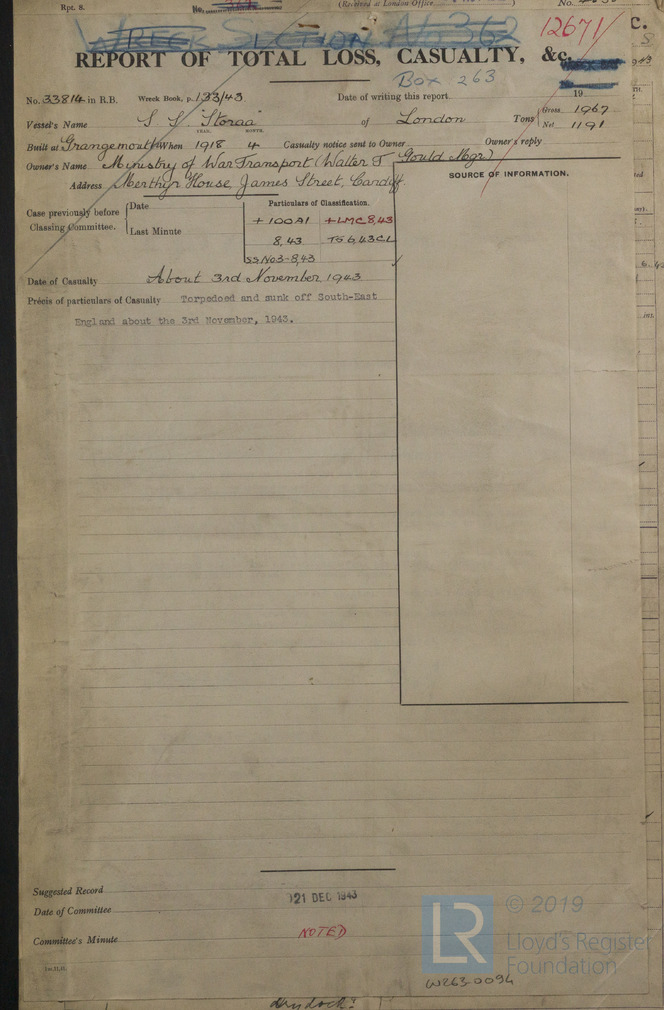 Rpt. 8.
(Received at London Office
No.
WRECK SECTION No 362
12671
REPORT OF TOTAL LOSS, CASUALTY, &c.
Box 263
No. 33814 in R.B. Wreck Book, p. 133/43 Date of writing this report 19
Vessel's Name S.S. "Storaa" of London Tons Gross 1967 Net 1191
YEAR. MONTH.
Built at Grangemouth When 1918 4 Casualty notice sent to Owner Owner's reply
Owner's Name Ministry of War Transport (Walter T Gould Mgr)
Address Merthyr House James Street, Cardiff.
SOURCE OF INFORMATION.
Case previously before Classing Committee. Date Last Minute
Particulars of Classification.
+100A1 +LMC 8,43
8,43 TS 6,43 CL
SS No3-8,43
Date of Casualty About 3rd November 1943
Précis of particulars of Casualty Torpedoed and sunk off South-East
England about the 3rd November, 1943.
Suggested Record
21 DEC 1943
Date of Committee
Committee's Minute NOTED
LR © 2019
Lloyd's Register
Foundation
W263-0094